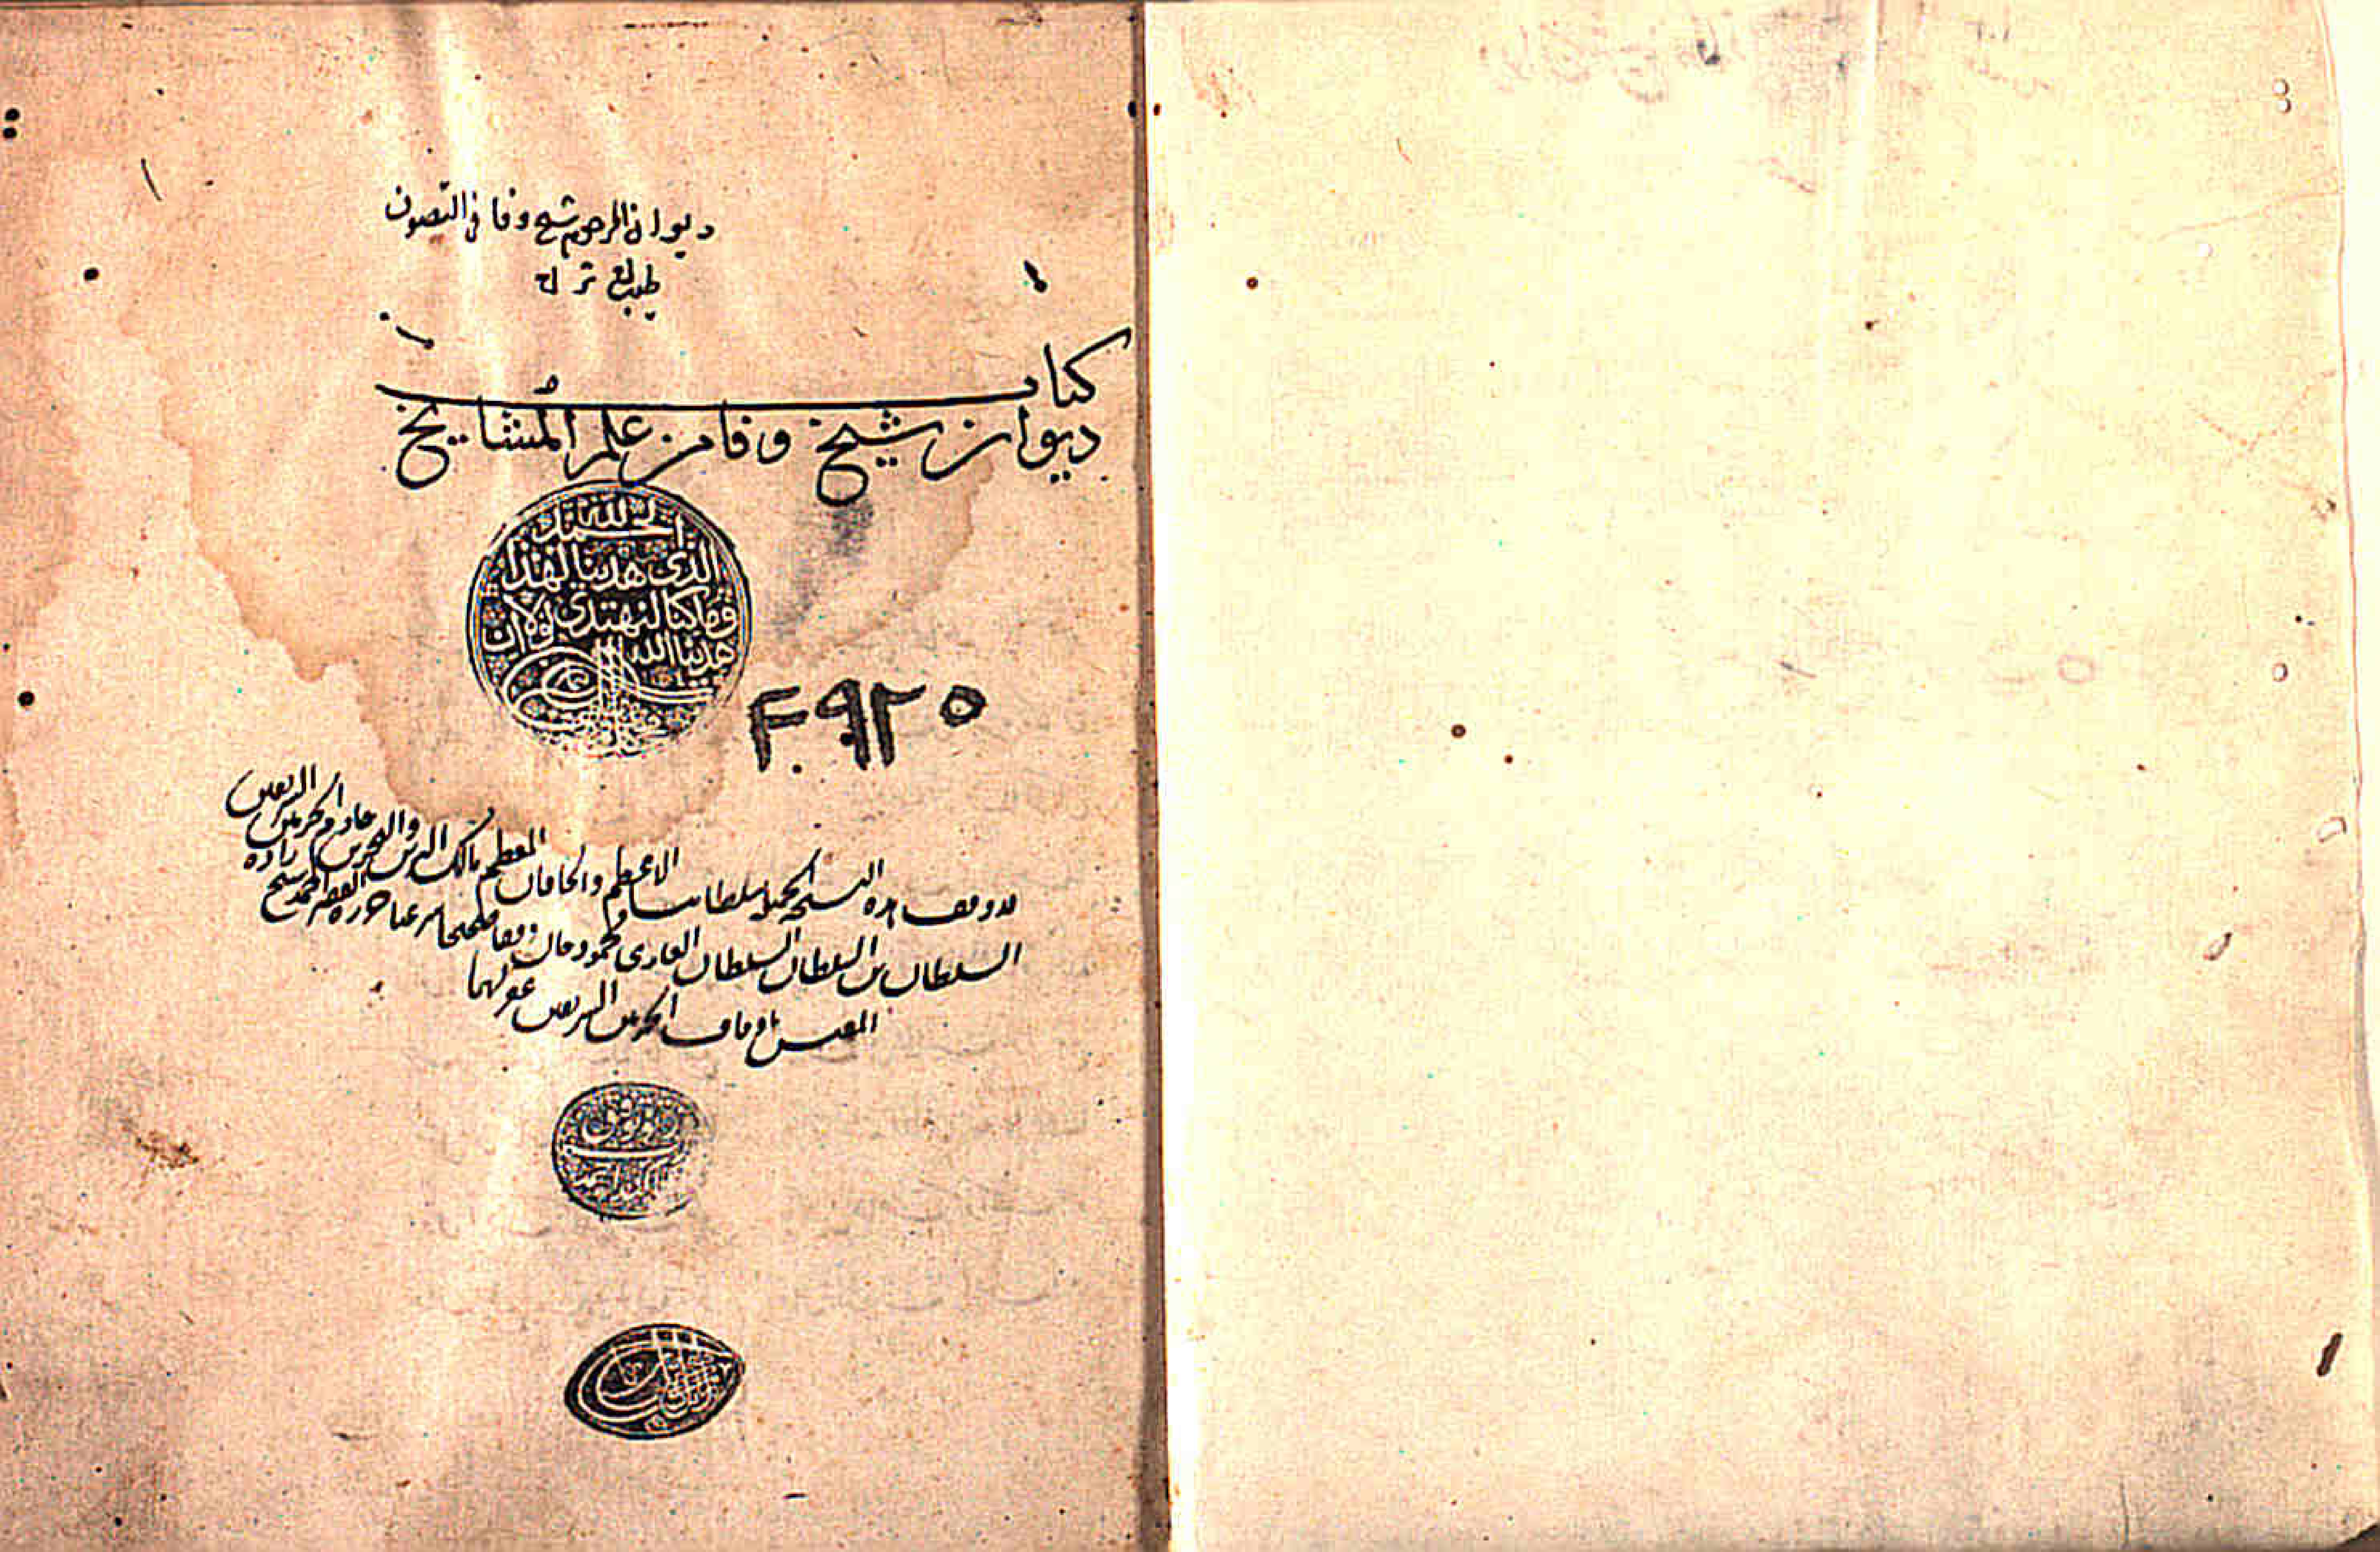 ديوان المرحوم شيخ وفا فى التصوف
كتاب
ديوان شيخ وفا من علم المشايخ
الحمد لله
الذى هدينا لهذا
وما كنا لنهتدى لولا ان
هدينا الله
٣٩٢٥
قد وقف هذه النسخة الجليلة سلطاننا الاعظم والخاقان المعظم مالك البرين والبحرين خادم الحرمين الشريفين
السلطان بن السلطان السلطان الغازى محمود خان وقفا صحيحا شرعيا حرره الفقير احمد شيخ زاده
المفتش باوقاف الحرمين الشريفين غفر لهما